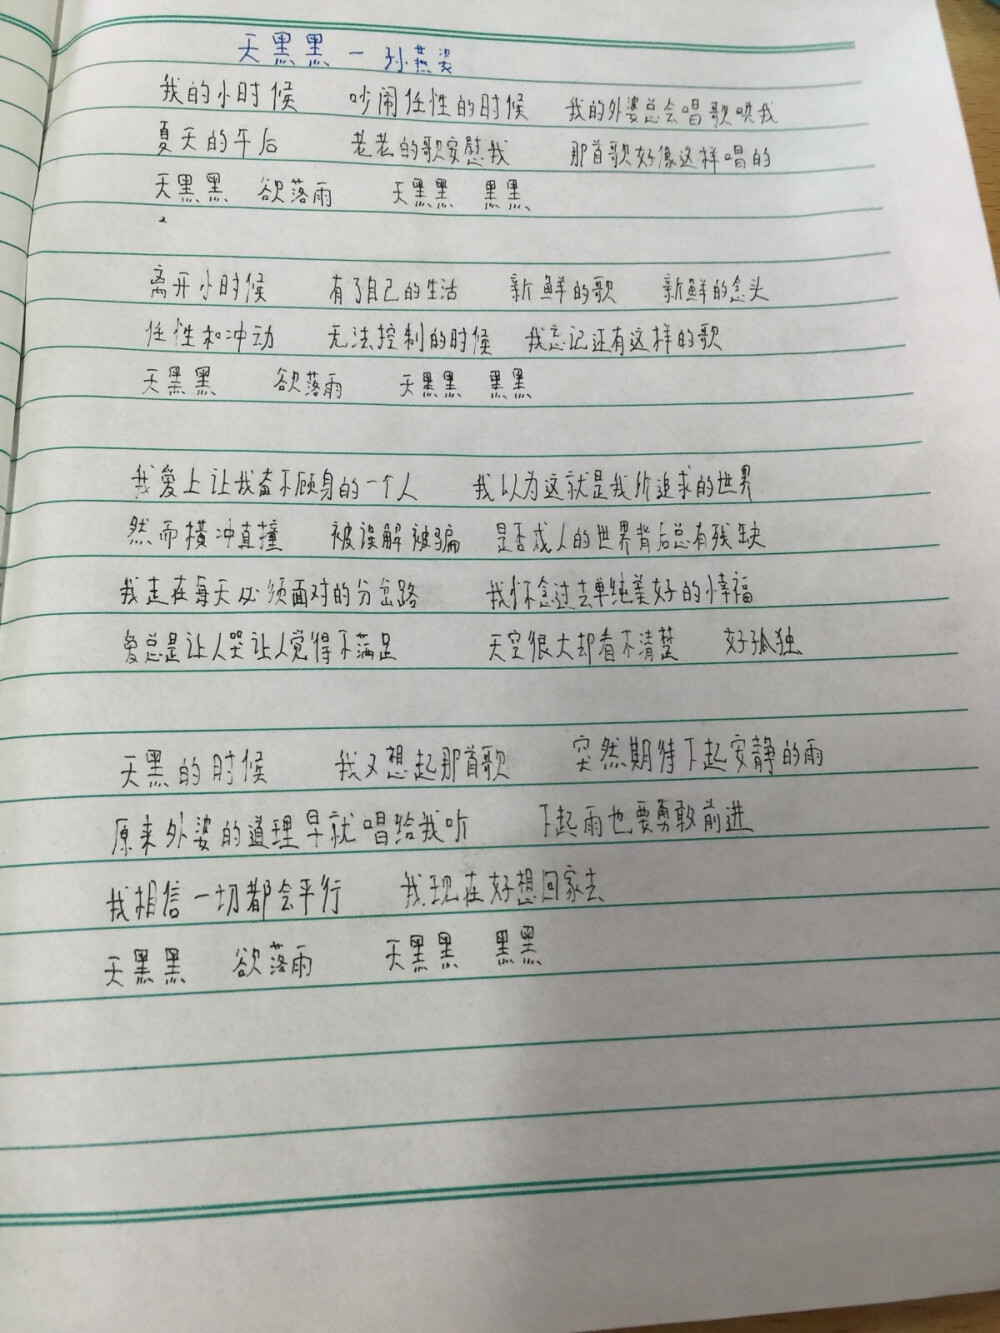 天黑黑 — 孙燕姿
我的小时候 吵闹任性的时候 我的外婆总会唱歌哄我
夏天的午后 老老的歌安慰我 那首歌好像这样唱的
天黑黑 欲落雨 天黑黑 黑黑
离开小时候 有了自己的生活 新鲜的歌 新鲜的念头
任性和冲动 无法控制的时候 我忘记还有这样的歌
天黑黑 欲落雨 天黑黑 黑黑
我爱上让我奋不顾身的一个人 我以为这就是我所追求的世界
然而横冲直撞 被误解被骗 是否成人的世界背后总有残缺
我走在每天必须面对的分岔路 我怀念过去单纯美好的幸福
爱总是让人哭让人觉得不满足 天空很大却看不清楚 好孤独
天黑的时候 我又想起那首歌 突然期待下起安静的雨
原来外婆的道理早就唱给我听 下起雨也要勇敢前进
我相信一切都会平行 我现在好想回家去
天黑黑 欲落雨 天黑黑 黑黑